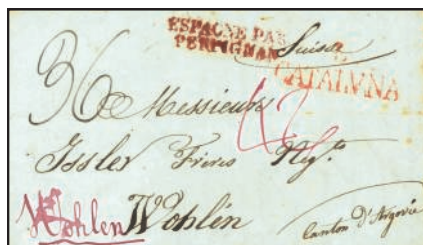 ESPAGNE PAR
PERPIGNAN
Suisse
CATALUÑA
36
Messieurs
42
Issler Freres Negts
Wohlen Wohlen
Canton d'Argovie